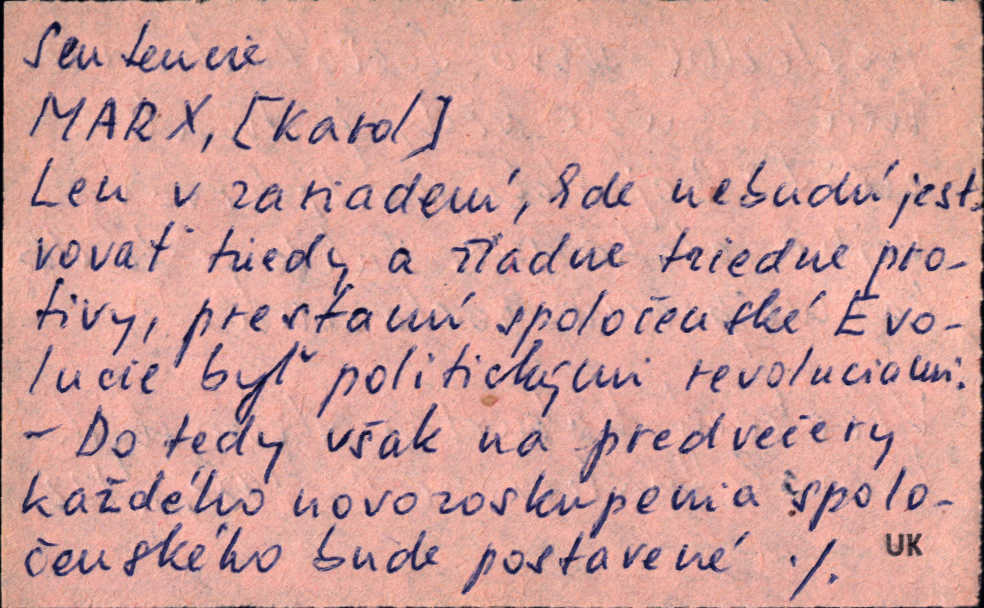 Sentencie
MARX, [Karol]
Len v zariadení, kde nebudú jest-
vovať triedy a žiadne triedne pro-
tivy, prestanú spoločenské Evo-
lucie byť politickými revoluciami.
- Do tedy však na predvečery
každého novozoskupenia spolo-
čenského bude postavené ./.
UK